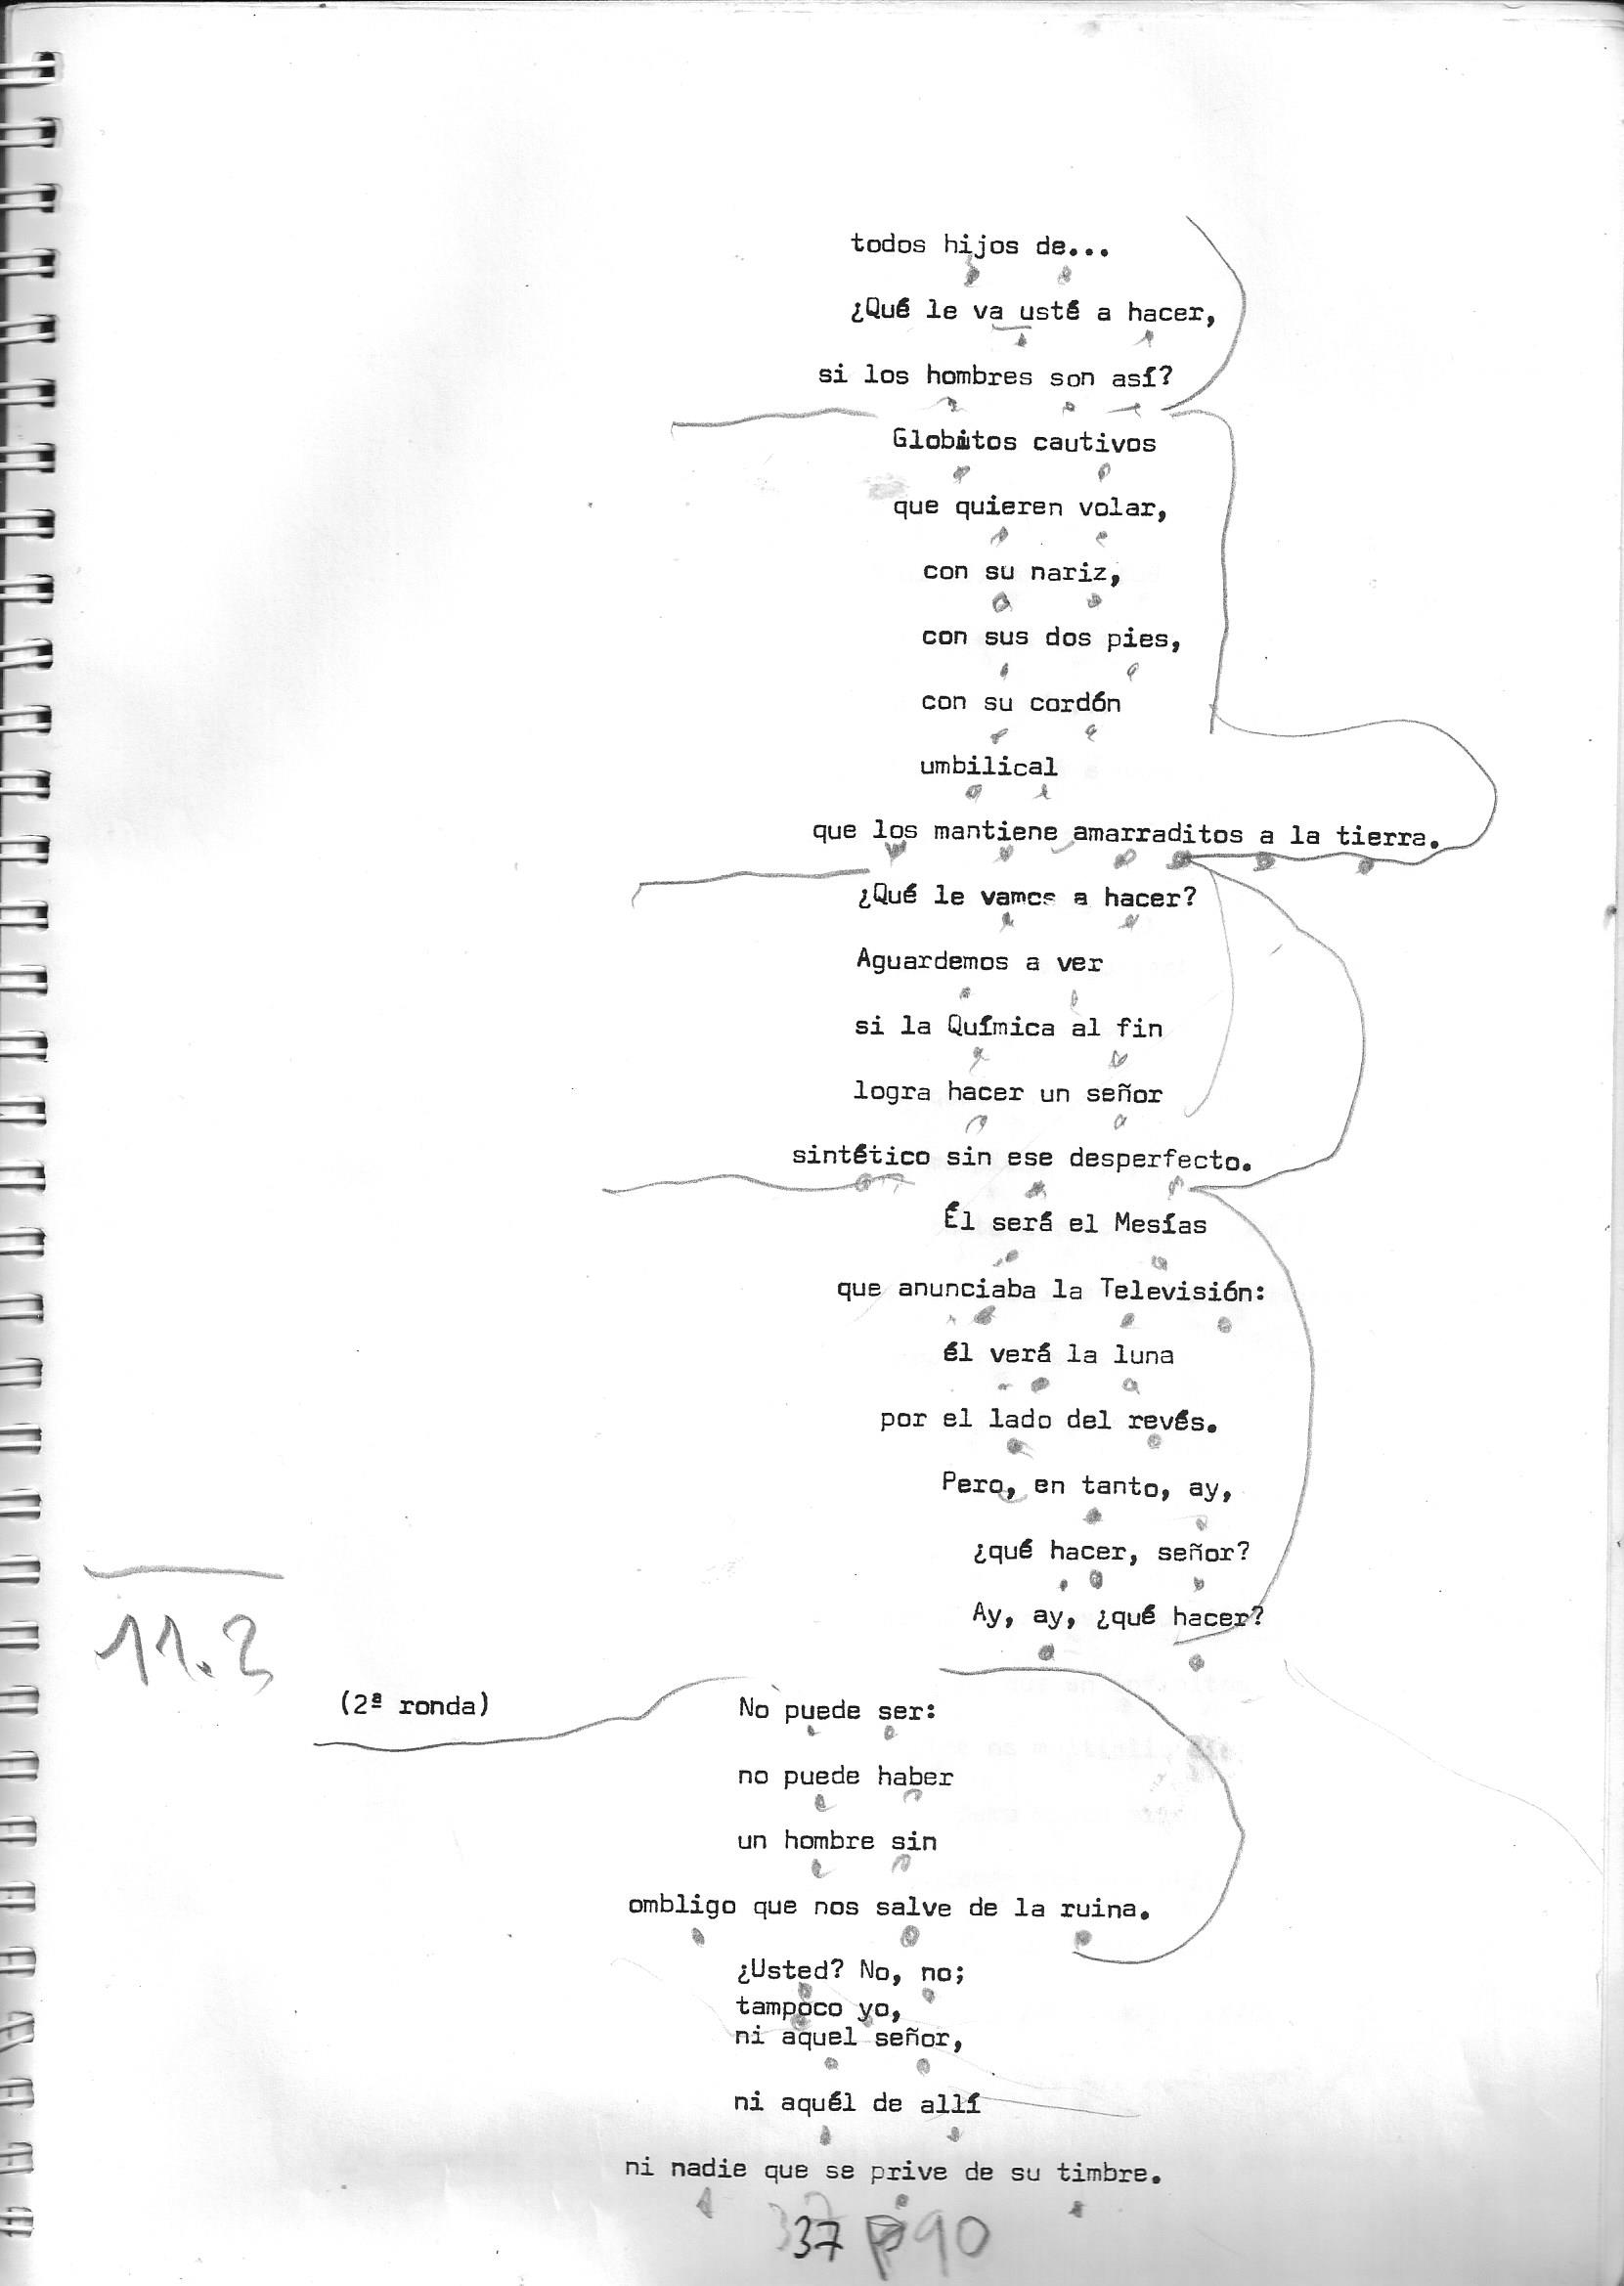 todos hijos de...
¿Qué le va usté a hacer,
si los hombres son así?
Globitos cautivos
que quieren volar,
con su nariz,
con sus dos pies,
con su cordón
umbilical
que los mantiene amarraditos a la tierra.
¿Qué le vamos a hacer?
Aguardemos a ver
si la Química al fin
logra hacer un señor
sintético sin ese desperfecto.
Él será el Mesías
que anunciaba la Televisión:
él verá la luna
por el lado del revés.
Pero, en tanto, ay,
¿qué hacer, señor?
Ay, ay, ¿qué hacer?
11.2
(2ª ronda) No puede ser:
no puede haber
un hombre sin
ombligo que nos salve de la ruina.
¿Usted? No, no;
tampoco yo,
ni aquel señor,
ni aquél de allí
ni nadie que se prive de su timbre.
37 90